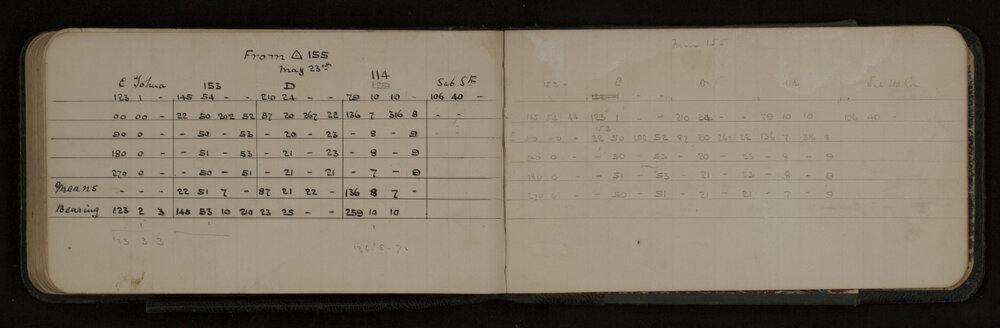 From △ 155
May 23rd
E Tohua 153 D 114 Sub Stn
129
123 1 - 145 54 - - 210 24 - - 79 10 10 - 106 40 -
00 00 - 22 50 202 52 87 20 267 22 136 7 316 8 - -
90 0 - - 50 - 53 - 20 - 23 - 8 - 9
180 0 - - 51 - 53 - 21 - 23 - 8 - 9
270 0 - - 50 - 51 - 21 - 21 - 7 - 9
Means - - - 22 51 7 - 87 21 22 - 136 8 7 -
Bearing 123 2 3 145 53 10 210 23 25 - - 259 10 10
1 1 1
123 3 3
From 155
153 E D 114
123 1 - - 210 24 - - 79 10 10 106 40 -
153
E 00 00 - 22 50 202 52 87 20 267 22 136 7 316 8
90 0 - - 50 - 53 - 20 - 23 - 8 - 9
180 0 - - 51 - 53 - 21 - 23 - 8 - 9
270 0 - - 50 - 51 - 21 - 21 - 7 - 9